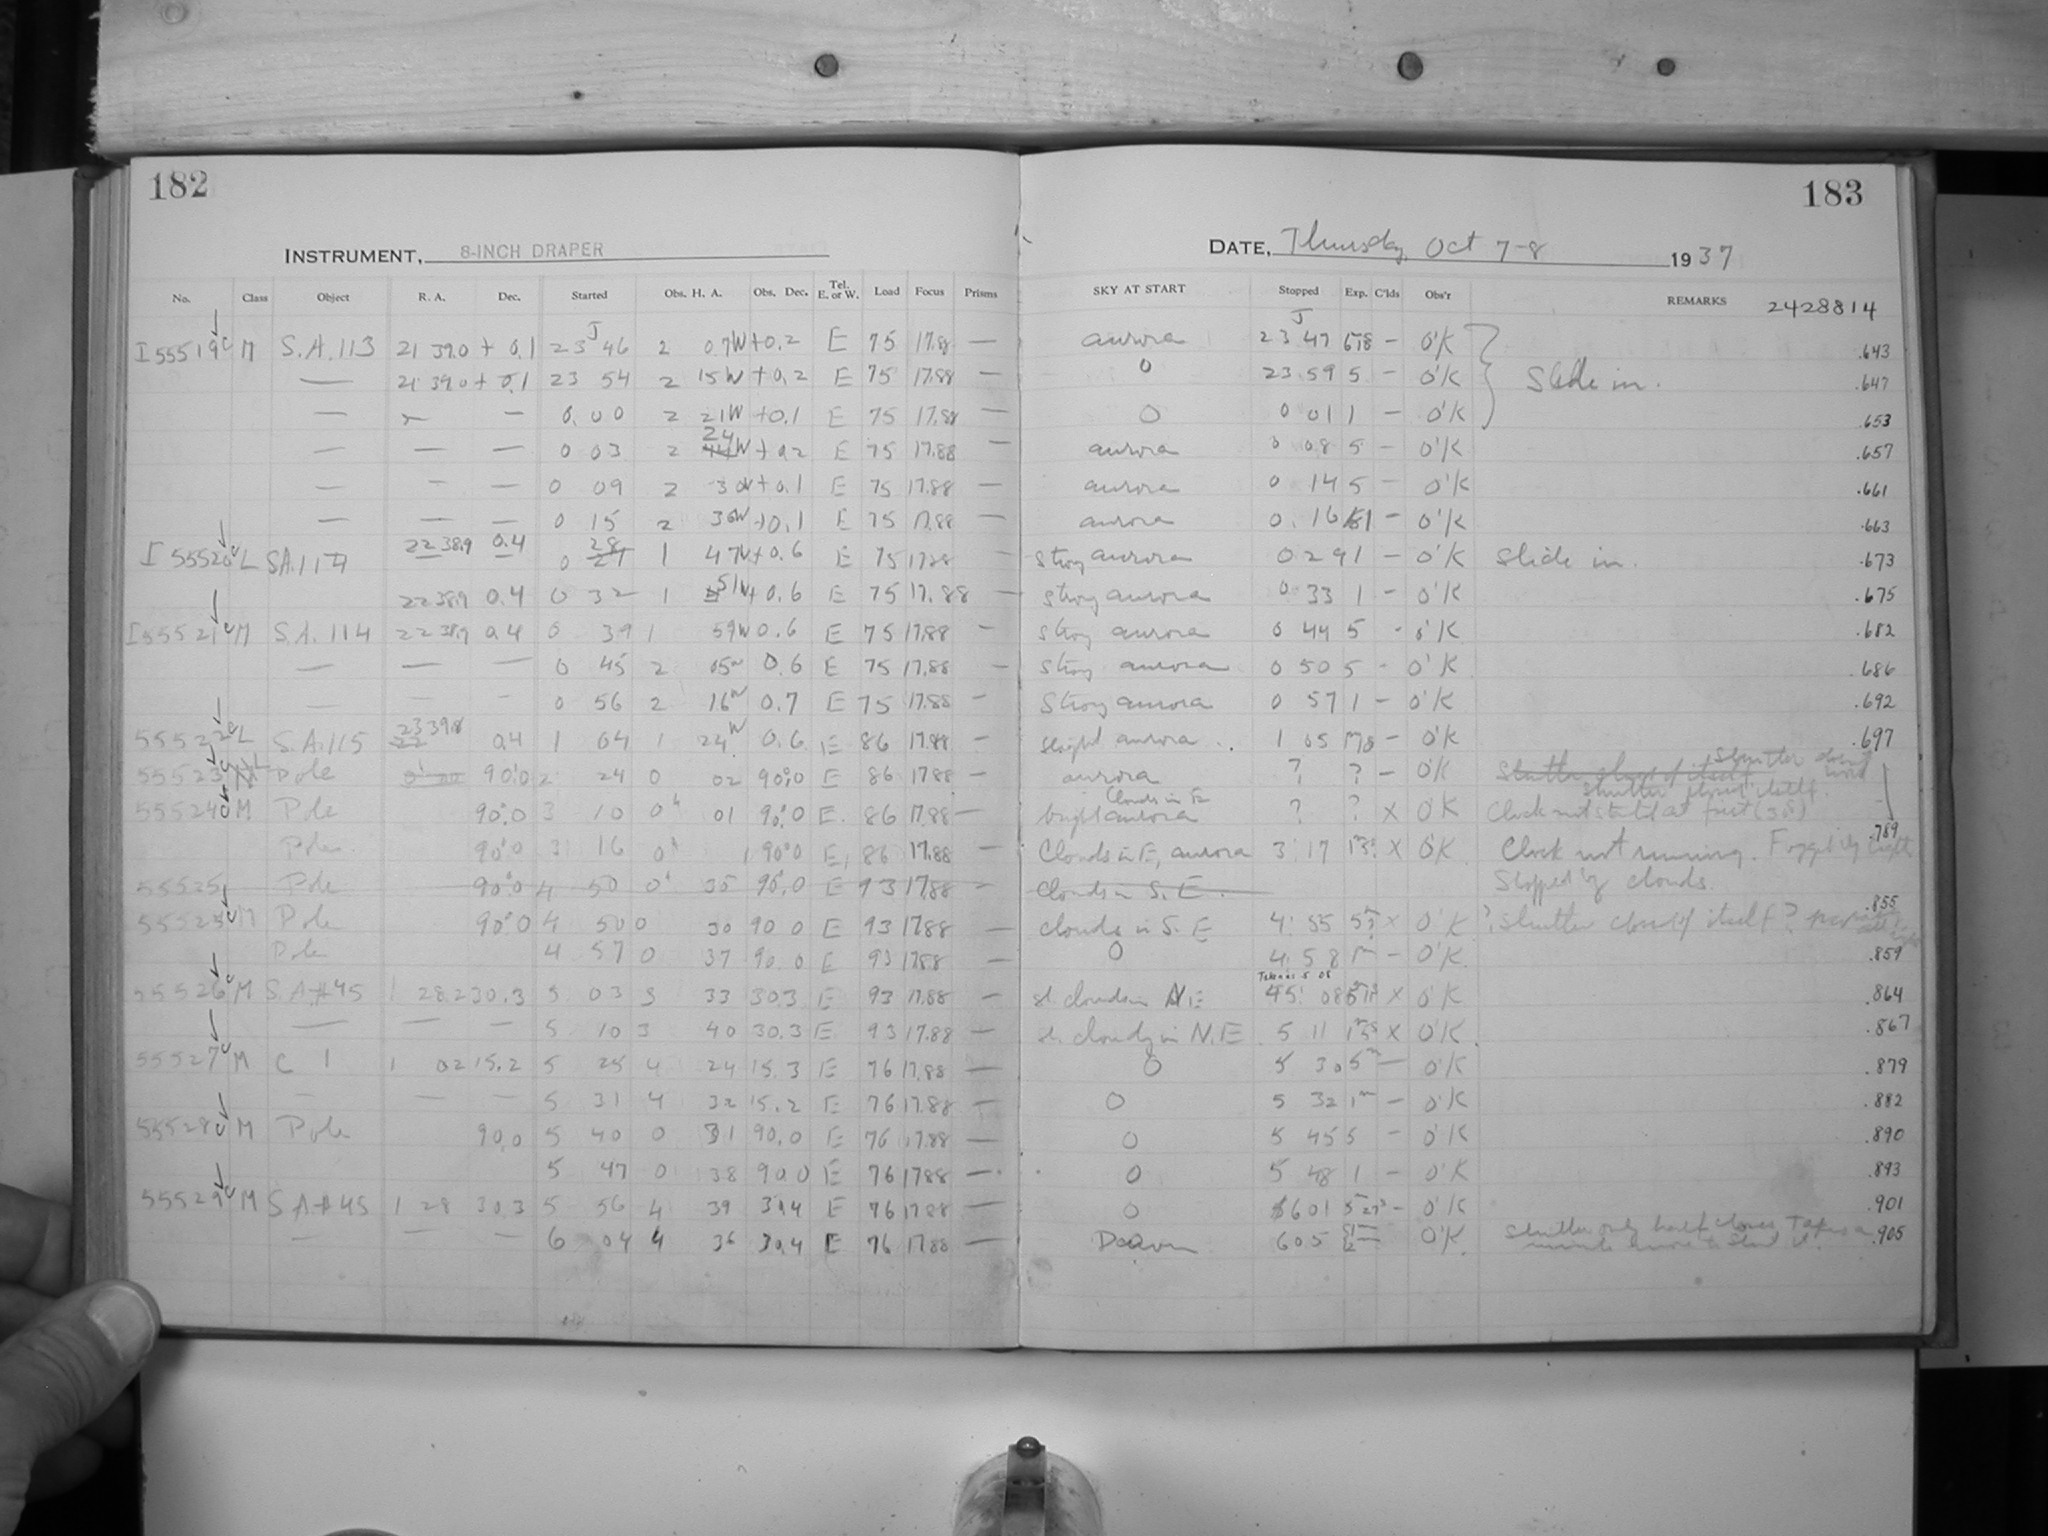 182
INSTRUMENT, 8-INCH DRAPER
No. Class Object R. A. Dec. Started Obs. H. A. Obs. Dec. Tel. E. or W. Load Focus Prisms
I 55519 c M S.A. 113 21 39.0 + 0.1 23 J 46 2 0.7W +0.2 E 75 17.88 —
— 21 39.0 + 0.1 23 54 2 15W +0.2 E 75 17.88 —
— — — 0. 00 2 21W +0.1 E 75 17.88 —
— — — 0 03 2 24W +0.2 E 75 17.88 —
— — — 0 09 2 30W +0.1 E 75 17.88 —
— — — 0 15 2 36W +0.1 E 75 17.88 —
I 55520 c L SA. 114 22 38.9 0.4 0 28 1 47W +0.6 E 75 17.88
22 38.9 0.4 0 32 1 51W +0.6 E 75 17.88 —
I 55521 c M S.A. 114 22 38.9 0.4 0 39 1 59W 0.6 E 75 17.88 —
— — — 0 45 2 05W 0.6 E 75 17.88 —
— — — 0 56 2 16W 0.7 E 75 17.88 —
55522 c L S.A. 115 23 39.8 0.4 1 04 1 24W 0.6 E 86 17.88 —
55523 c L Pole 90.0 2 24 0 02 90.0 E 86 17.88 —
55524 c M Pole 90.0 3 10 0h 01 90.0 E. 86 17.88 —
Pole 90.0 3 16 0h 90.0 E 86 17.88
55525 Pole 90.0 4 50 0h 30 90.0 E 93 17.88 —
55525 c M Pole 90.0 4 50 0 30 90 0 E 93 17.88 —
Pole 4 57 0 37 90. 0 E 93 17.88 —
55526 c M S.A # 45 1 28.2 30.3 5 03 3 33 30.3 E 93 17.88 —
— — — 5 10 3 40 30.3 E 93 17.88 —
55527 c M C 1 1 02 15.2 5 25 4 24 15.3 E 76 17.88 —
— — — 5 31 4 32 15.2 E 76 17.88 —
55528 c M Pole 90.0 5 40 0 31 90.0 E 76 17.88 —
5 47 0 38 90.0 E 76 17.88 —
55529 c M S A # 45 1 28 30.3 5 56 4 39 30.4 E 76 17.88 —
— — — 6 04 4 36 30.4 E 76 17.88 —
183
DATE, Thursday, Oct 7-8 1937
SKY AT START Stopped Exp. C'lds Obs'r REMARKS 2428814
aurora 23 J 47 — O'K .643
0 23 59 5 — O'K Slide in. .647
0 0 01 1 — O'K .653
aurora 0 08 5 — O'K .657
aurora 0 14 5 — O'K .661
aurora 0. 16 1 — O'K .663
strong aurora 0 29 1 — O'K Slide in. .673
strong aurora 0 33 1 — O'K .675
strong aurora 0 44 5 - O'K .682
strong aurora 0 50 5 - O'K .686
Strong aurora 0 57 1 — O'K .692
slight aurora 1 05 — O'K .697
aurora ? ? — O'K Shutter closed itself.
Clouds in E
bright aurora ? ? X O'K Clock not started at first (3 s)
.789
Clouds in E, aurora 3 17 X O'K Clock not running. Fogged by light
Clouds in S. E. Stopped by clouds.
.855
clouds in S. E 4 55 5 X O'K ? Shutter closed itself?
0 4 58 1m — O'K .859
sl clouds in N E 5 08 X O'K .864
sl. cloudy in N.E 5 11 X O'K .867
0 5 30 5m — O'K .879
0 5 32 1m — O'K .882
0 5 45 5 — O'K .890
0 5 48 1 — O'K .893
0 6 01 5 — O'K .901
Dawn 6 05 — O'K Shutter only half closes .905